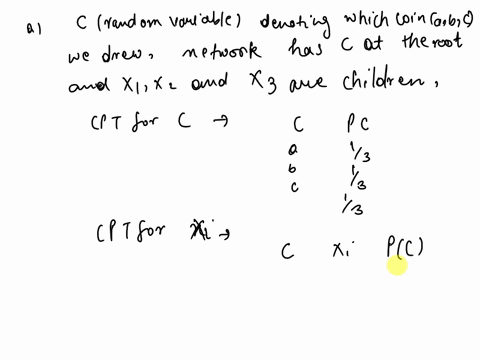 a) C (random variable) denoting which coin (a,b,c)
we drew, network has C at the root
and X1, X2 and X3 are children,
CPT for C → C PC
a 1/3
b 1/3
c
1/3
CPT for Xi →
C Xi P(C)